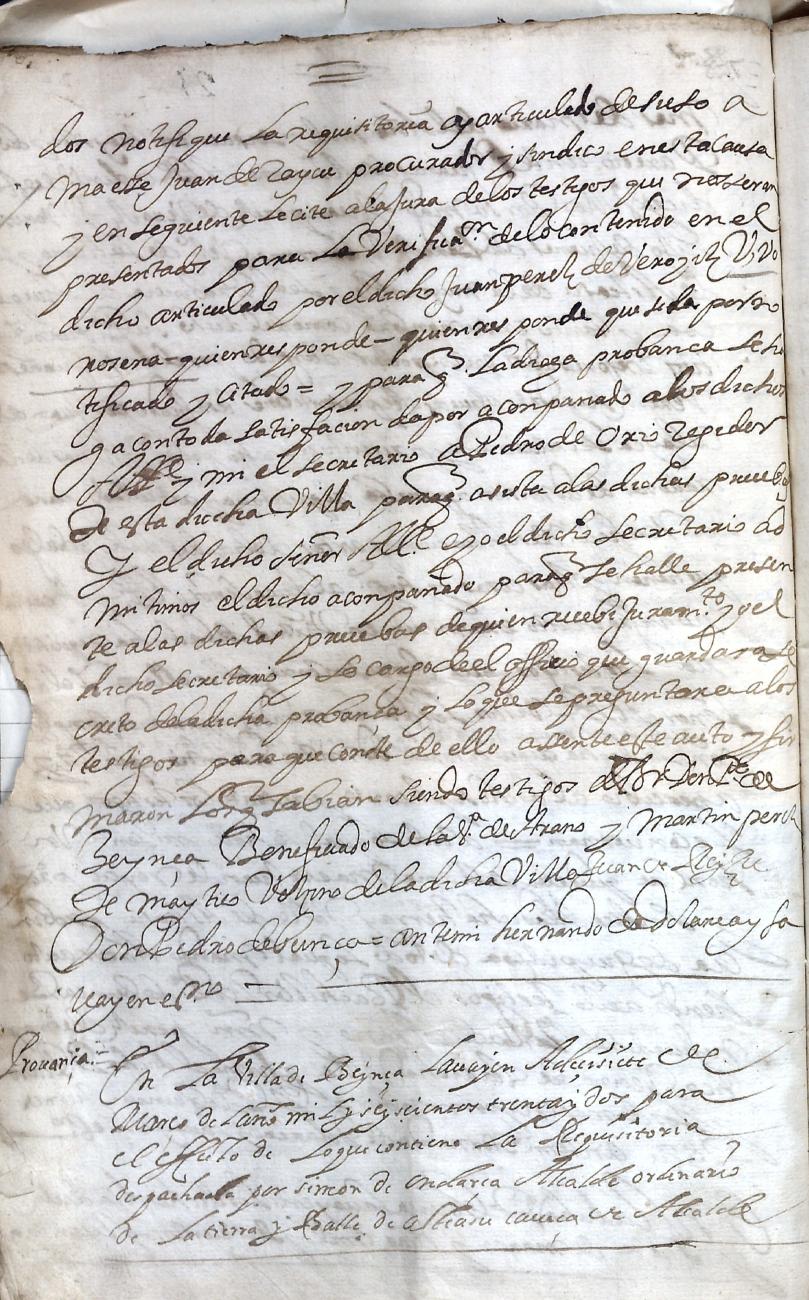 dos notifique la requisitoria y articulado de suso a
maesse Juan de Zaycu procurador y sindico en esta causa
y en seguiente le cite a la jura de los testigos que nos seran
presentados para la Verificaon de lo contenido en el
dicho articulado por el dicho Juan perez de Vero
nosena = quien responde = quien responde que se da por no
tificado y citado = y para q La dicha probanca se ha
ga con toda satisfacion da por aconpañado a los dichos
Alle y mi el secretario a Pedro de Orio Regidor
de esta dicha Villa para q asista a las dichas pruebas
Y el dicho Señor Alle e yo el dicho secretario ad
mitimos el dicho aconpañado para q se halle presen
te a las dichas pruebas de quien recebi Juramto yo el
dicho secretario y so cargo de el officio que guardara se
creto de la dicha probanza y lo que se preguntare a los
testigos para que conste de ello asente este auto y fir
maron siendo testigos de
Beynca Beneficiado de la de Arano y Martin perez
De maytico Vezino de la dicha Villa Juan
Don Pedro de berinça = ante mi hernando de Dolarea y la
uayen esno =
Prouança = En La Villa de Beynça Lauayen A diecisiete de
Março de Laño mil y seyscientos trenta y dos para
el effeto de Lo que contiene La Requisitoria
despachada por simon de endarea Alcalde ordinario
de La tierra y Balle de Alcalde